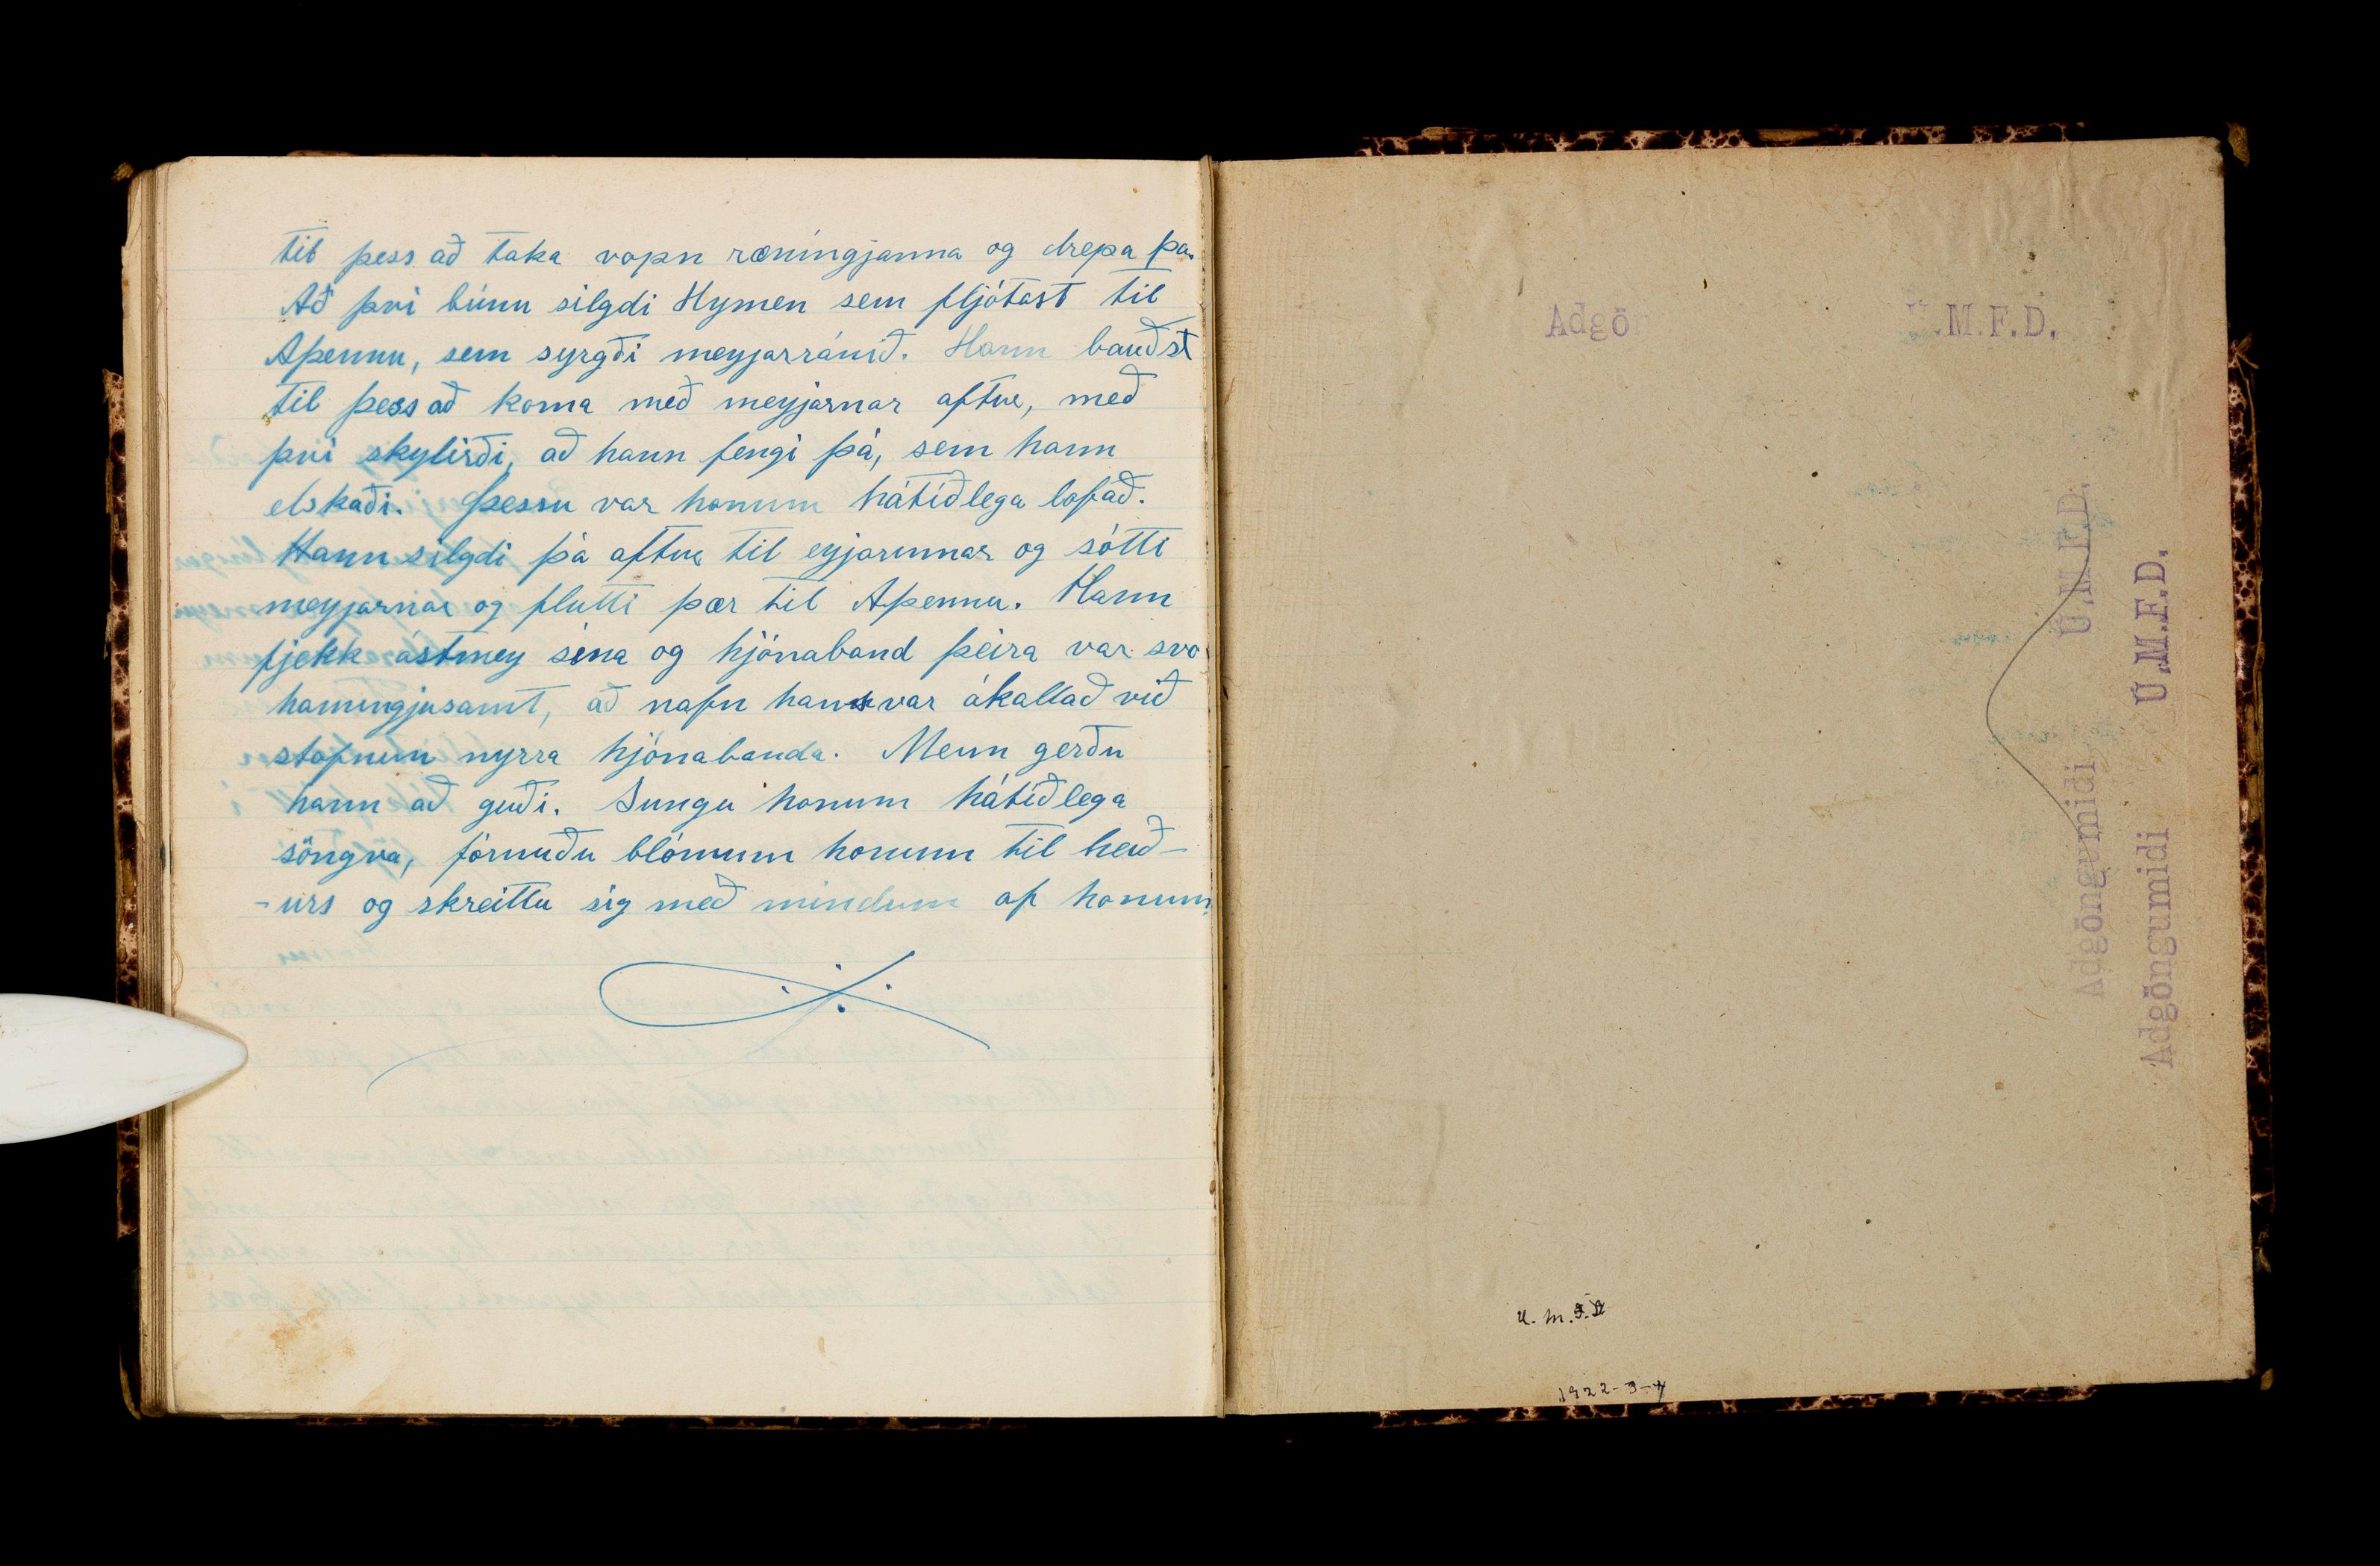 til þess að taka vopn ræningjanna og drepa þa.
Að því búnu silgdi Hymen sem fljótast til
Aþennu, sem syrgði meyjarránið. Hann bauðst
til þess að koma með meyjarnar aftur, með
því skylirði, að hann fengi þá, sem hann
elskaði. Þessu var honum hátíðlega lofað.
Hann silgdi þá aftur til eyjarinnar og sótti
meyjarnar og flutti þær til Aþennu. Hann
fjekk ástmey sína og hjónaband þeira var svo
hamingjusamt, að nafn hans var ákallað við
stofnun nyrra hjónabanda. Menn gerðu
hann að guði. Sungu honum hátíðlega
söngva, fórnuðu blómum honum til heið-
-urs og skreittu sig með mindum af honum.
Adgön
Ü.M.F.D.
Adgöngumidi Ü.M.F.D.
Adgöngumidi Ü.M.F.D.
U.M.F.D
1922-3-4